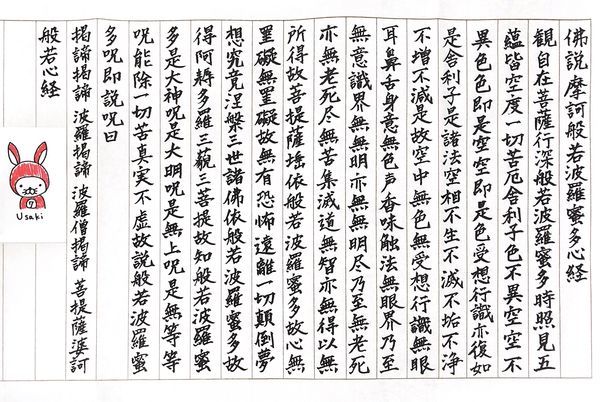 佛説摩訶般若波羅蜜多心経
観自在菩薩行深般若波羅蜜多時照見五
蘊皆空度一切苦厄舎利子色不異空空不
異色色即是空空即是色受想行識亦復如
是舎利子是諸法空相不生不滅不垢不浄
不増不減是故空中無色無受想行識無眼
耳鼻舌身意無色声香味触法無眼界乃至
無意識界無無明亦無無明尽乃至無老死
亦無老死尽無苦集滅道無智亦無得以無
所得故菩提薩埵依般若波羅蜜多故心無
罣礙無罣礙故無有恐怖遠離一切顛倒夢
想究竟涅槃三世諸佛依般若波羅蜜多故
得阿耨多羅三藐三菩提故知般若波羅蜜
多是大神呪是大明呪是無上呪是無等等
呪能除一切苦真実不虚故説般若波羅蜜
多呪即説呪曰
掲諦掲諦 波羅掲諦 波羅僧掲諦 菩提薩婆訶
般若心経
Usaki